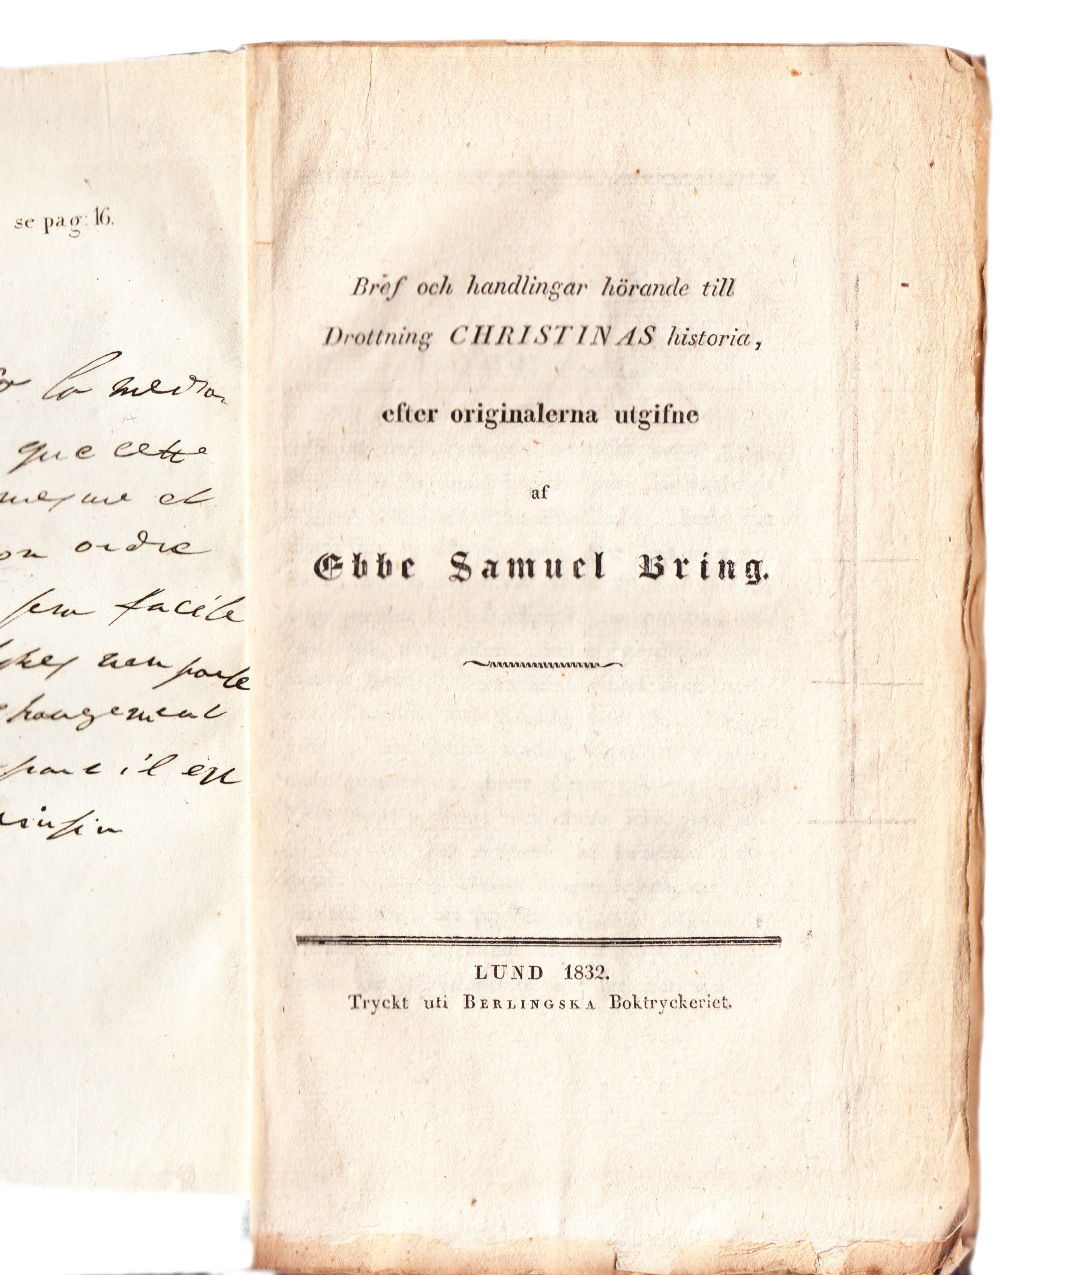 se pag: 16.
la
que cette
et
ordre
facile
il est
Bref och handlingar hörande till
Drottning CHRISTINAS historia,
efter originalerna utgifne
af
Ebbe Samuel Bring.
LUND 1832.
Tryckt uti BERLINGSKA Boktryckeriet.